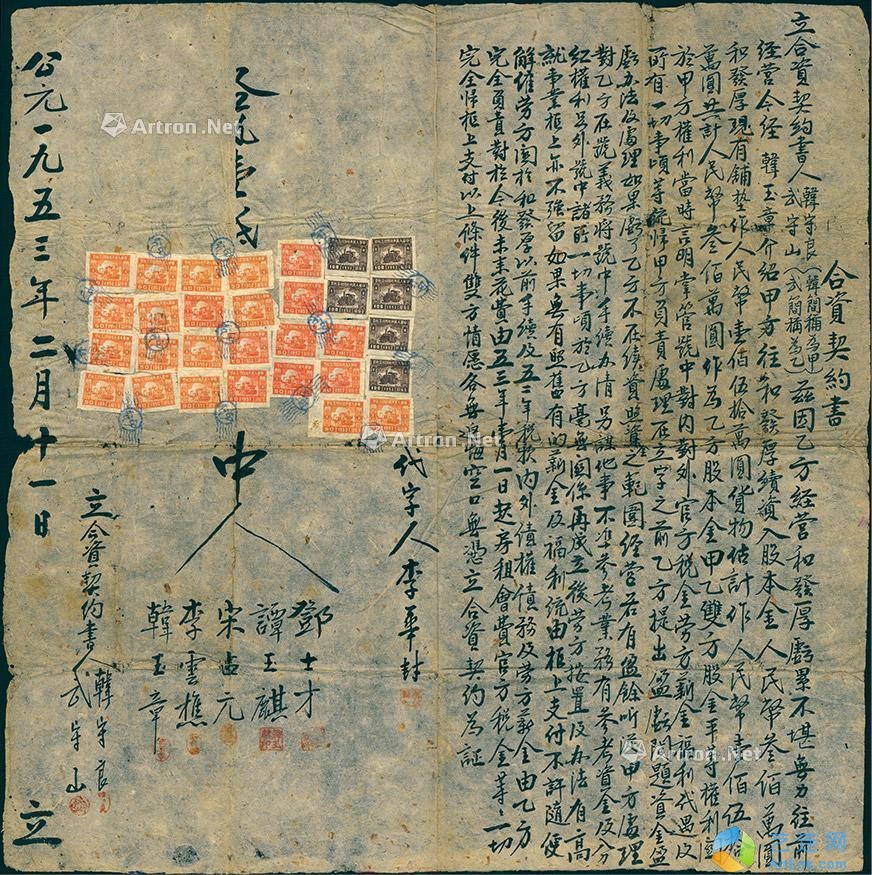 合資契約書
立合資契約書人韓守良(韓簡稱為甲)武守山(武簡稱為乙)茲因乙方經營和發厚虧累不堪無力往前
經營今經韓玉章介紹甲方往和發厚續資入股本金人民幣叁佰萬圓
和發厚現有舖墊作人民幣壹佰伍拾萬圓貨物估計作人民幣壹佰伍拾
萬圓共計人民幣叁佰萬圓作為乙方股本金甲乙雙方股金平等權利
於甲方權利當時言明掌管號中對內對外官方稅金勞方薪金福利代遇及
所有一切事項等統歸甲方負責處理在立字之前乙方提出盈虧問題資金盈
虧办法及處理如果虧了乙方不在續資照資之範圍經营若有盈餘听從甲方處理
對乙方在號義務將號中手續办清另謀他事不準參考業務有參考資金及分
紅權利另外號中諸所一切事項於乙方毫無関係再成立後勞方按置及办法有高
就事業柜上亦不強留如果無有照舊有的薪金及福利統由柜上支付不許隨便
解僱勞方関於和發厚以前手續及五二年稅務內外債權債務及勞方薪金由乙方
完全負責對於今後未来花費由五三年壹月一日起房租會費官方稅金等一切
完全歸柜上支付以上條件雙方情愿各無返悔空口無憑立合資契約為証
代字人 李華封
中人
鄧士才
譚玉麒
宋占元
李雲樵
韓玉章
立合資契約書人 韓守良
武守山
公元一九五三年二月十一日 立
Artron.Net
Artron.Net
Artron.Net